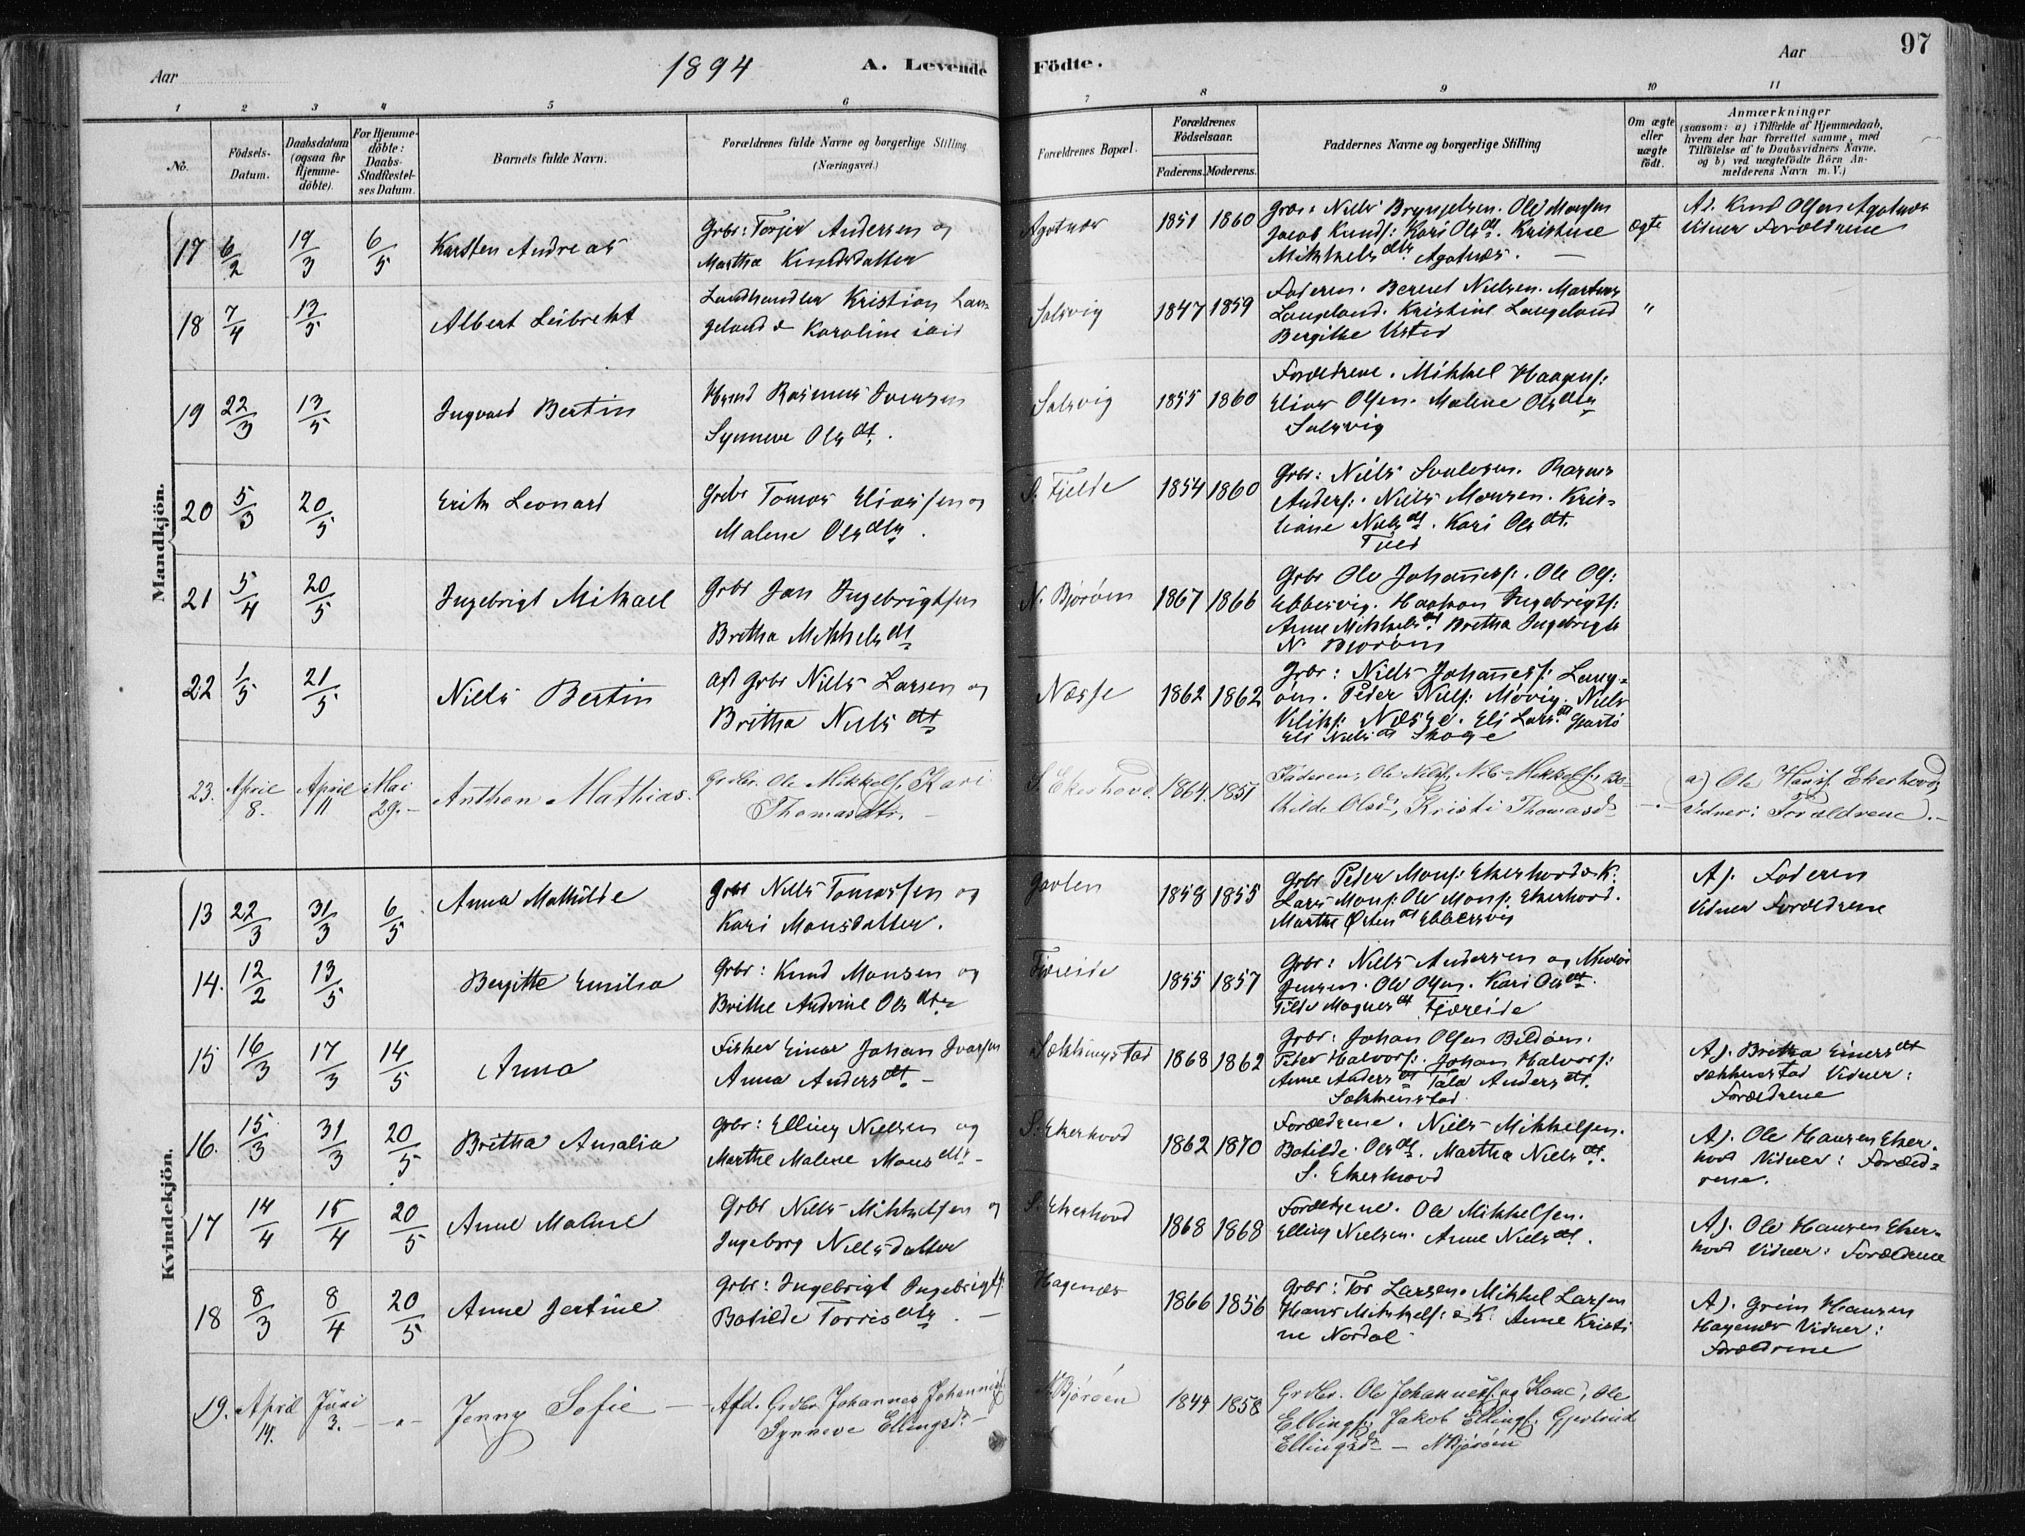 Aar 1894 A. Levende Födte. Aar 97
1 2 3 4 5 6 7 8 9 10 11
No. Födsels-Datum. Daabsdatum (ogsaa for Hjemme-döbte). For Hjemme-döbte: Daabs-Stadfæstel-ses Datum. Barnets fulde Navn. Forældrenes fulde Navne og borgerlige Stilling (Næringsvei.) Forældrenes Bopæl. Forældrenes Födselsaar. Faderens. Moderens. Faddernes Navne og borgerlige Stilling Om ægte eller uægte födt. Anmærkninger (saasom: a) i Tilfælde af Hjemmedaab, hvem der har forrettet samme, med Tilföielse af to Daabsvidners Navne, og b) ved uægtefödte Börn An-melderens Navn m. V.)
Mandkjön.
17 6/2 19/3 6/5 Karsten Andreas Grbr: Torjer Andersen og Martha Knudsdatter Agotnæs 1851 1860 Niels Brynjelsen. Ole Monsen Jacob Knuds: Kari Olsdt. Kristine Mikkelsdtr Agotnæs. — ægte A). Knud Olsen Agotnæs Vidner Forældrene
18 7/4 13/5 Albert Leibrekt Landhandler Kristian Langeland & Karoline Solsvig 1847 1859 Faderen. Berent Nielsen. Langeland. Kristine Langeland Bergithe "
19 22/3 13/5 Ingvald Bertin Rasmus Iversen Synneve Olsdt. Solsvig 1855 1860 Forældrene. Mikkel Haagens: Elias Olsen. Malene Olsdtr Solsvig
20 5/3 20/5 Erik Leonard Grbr Tomas Eliassen og Malene Olsdtr. S. Fjelde 1854 1860 Grbr: Niels Rasmus Anders: Niels Monsen. Kristiane Nielsdt. Kari Olsdt. Fjeld
21 5/4 20/5 Ingebrigt Mikael Grbr Jan Ingebrigtsen Britha Mikkelsdt N. Bjorøen 1867 1866 Grbr Ole Johaness: Ole Ols: Ebbesvig. Haakon Ingebrigts: Anne Mikkelsdt Britha Ingebrigts N. Bjorøen
22 1/5 21/5 Niels Bertin Grbr Niels Larsen og Britha Nielsdt Næsse 1862 1862 Grbr: Niels Johaness: Langøen. Peder Niels: Møvig. Niels Næsse. Eli Larsdt Eli Nielsdt Skoge
23. April 8. April 11 Mai 29. Anthon Mathias. Grdbr. Ole Mikkels. Kari Thomasdtr. — S. Ekerhovd. 1864. 1851 Faderen, Ole Niels, Nils Mikkels, Olsd, Kristi Thomasd —. a) Ole Hanss. Ekerhovd, Vidner: Forældrene.
Kvindekjön.
13 22/3 31/3 6/5 Anna Mathilde Grbr Niels Tomassen og Kari Monsdatter. Gavlen 1858 1855 Grbr Peder Mons: Ekerhovd & K. Lars Mons: Ole Mons: Ekerhovd. Marthe Ebbesvig A). Faderen Vidner Forældrene
14. 12/2 13/5 Bergitte Emilia Grbr: Knud Monsen og Brithe Andrine Olsdtr Fjæreide 1855 1857 Grbr: Niels Andersen og Jensen. Ole Olsen. Kari Olsdt. Magnesdt Fjæreide
15 16/3 17/3 14/5 Anna Fisker Einar Johan Ivarsen Anna Andersdt. — Sækkingstad 1868 1862 Grbr: Johan Olsen Bildøen. Peter Halvors: Johan Halvors: Anne Andersdt Andersdt. Sækkenstad A). Britha Einersdt Sækkenstad Vidner: Forældrene
16. 15/3 31/3 20/5 Britha Amalia Grbr: Elling Nielsen og Marthe Malene Monsdtr — S. Ekerhovd 1862 1870 Forældrene. Niels Mikkelsen. Botilde Olsdt. Martha Nielsdt. S. Ekerhovd A). Ole Hansen Ekerhovd Vidner: Forældrene.
17 14/4 15/4 20/5 Anne Malene Grbr Niels Mikkelsen og Ingeborg Nielsdatter S. Ekerhovd 1868 1868 Forældrene. Ole Mikkelsen. Elling Nielsen. Anne Nielsdt. A). Ole Hansen Ekerhovd Vidner: Forældrene
18 8/3 8/4 20/5 Anne Jertine Grbr: Ingebrigt Ingebrigts. Botilde Torrisdtr. — Hagenæs 1866 1856 Grbr: Tor Larsen. Mikkel Larsen Hans Mikkels: & K. Anne Kristine Nordal A). Grim Hansen Hagenæs Vidner: Forældrene
19. April 14. Juni 3. — — " — Jenny Sofie — Afd. Grdbr. Johannes Johanness. Synneve Ellingsd — N. Bjorøen 1844 1858 Grdbr. Ole Johanness. og Kone, Ole Ellings, Jakob Ellings. Gjertrud Ellingsd — N Bjorøen